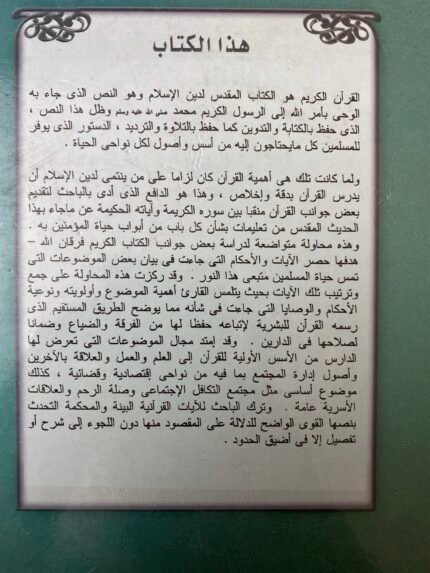 هذا الكتاب
القرآن الكريم هو الكتاب المقدس لدين الإسلام وهو النص الذى جاء به
الوحى بأمر الله إلى الرسول الكريم محمد صلى الله عليه وسلم وظل هذا النص ،
الذى حفظ بالكتابة والتدوين كما حفظ بالتلاوة والترديد ، الدستور الذى يوفر
للمسلمين كل مايحتاجون إليه من أسس وأصول لكل نواحى الحياة .
ولما كانت تلك هى أهمية القرآن كان لزاما على من ينتمى لدين الإسلام أن
يدرس القرآن بدقة وإخلاص ، وهذا هو الدافع الذى أدى بالباحث لتقديم
بعض جوانب القرآن منقبا بين سوره الكريمة وآياته الحكيمة عن ماجاء بهذا
الحديث المقدس من تعليمات بشأن كل باب من أبواب حياة المؤمنين به .
وهذه محاولة متواضعة لدراسة بعض جوانب الكتاب الكريم فرقان الله –
هدفها حصر الآيات والأحكام التى جاءت فى بيان بعض الموضوعات التى
تمس حياة المسلمين متبعى هذا النور . وقد ركزت هذه المحاولة على جمع
وترتيب تلك الآيات بحيث يتلمس القارئ أهمية الموضوع وأولويته ونوعية
الأحكام والوصايا التى جاءت فى شأنه مما يوضح الطريق المستقيم الذى
رسمه القرآن للبشرية لإتباعه حفظا لها من الفرقة والضياع وضمانا
لصلاحها فى الدارين . وقد إمتد مجال الموضوعات التى تعرض لها
الدارس من الأسس الأولية للقرآن إلى العلم والعمل والعلاقة بالآخرين
وأصول إدارة المجتمع بما فيه من نواحى إقتصادية وقضائية ، كذلك
موضوع أساسى مثل مجتمع التكافل الإجتماعى وصلة الرحم والعلاقات
الأسرية عامة . وترك الباحث للآيات القرآنية البينة والمحكمة التحدث
بنصها القوى الواضح للدلالة على المقصود منها دون اللجوء إلى شرح أو
تفصيل إلا فى أضيق الحدود .